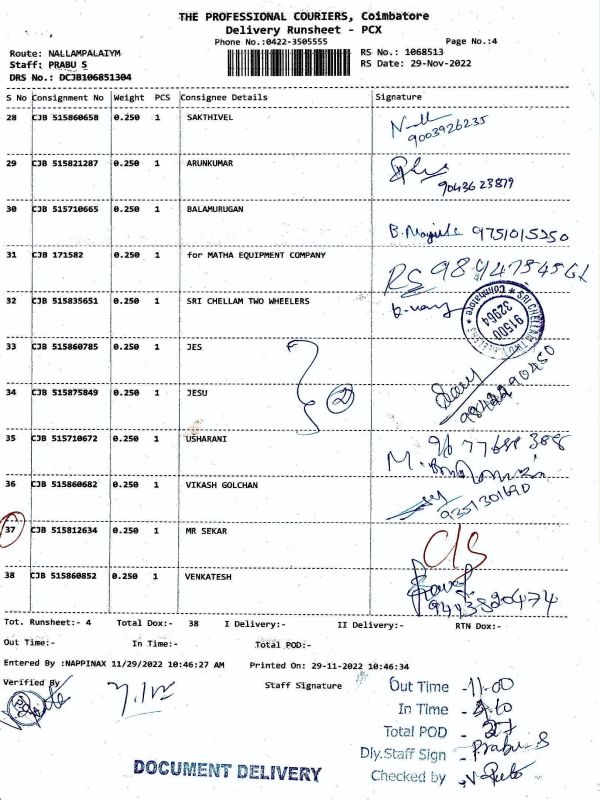 THE PROFESSIONAL COURIERS, Coimbatore
Delivery Runsheet - PCX
Phone No.:0422-3505555
Page No.:4
Route: NALLAMPALAIYM
RS No.: 1068513
Staff: PRABU S
RS Date: 29-Nov-2022
DRS No.: DCJB106851304
S No Consignment No Weight PCS Consignee Details Signature
28 CJB 515860658 0.250 1 SAKTHIVEL
9003926235
29 CJB 515821287 0.250 1 ARUNKUMAR
9043623879
30 CJB 515710665 0.250 1 BALAMURUGAN
9751015250
31 CJB 171582 0.250 1 for MATHA EQUIPMENT COMPANY
RS
32 CJB 515835651 0.250 1 SRI CHELLAM TWO WHEELERS
SRI CHELLAM TWO WHEELERS Coimbatore
91500
32964
33 CJB 515860785 0.250 1 JES
2
34 CJB 515875849 0.250 1 JESU
35 CJB 515710672 0.250 1 USHARANI
M.
36 CJB 515860682 0.250 1 VIKASH GOLCHAN
37 CJB 515812634 0.250 1 MR SEKAR
38 CJB 515860852 0.250 1 VENKATESH
Tot. Runsheet:- 4 Total Dox:- 38 I Delivery:- II Delivery:- RTN Dox:-
Out Time:- In Time:- Total POD:-
Entered By :NAPPINAX 11/29/2022 10:46:27 AM Printed On: 29-11-2022 10:46:34
Verified By Staff Signature
Out Time - 11.00
In Time -
Total POD - 27
Dly.Staff Sign - Prabu-S
Checked by
DOCUMENT DELIVERY